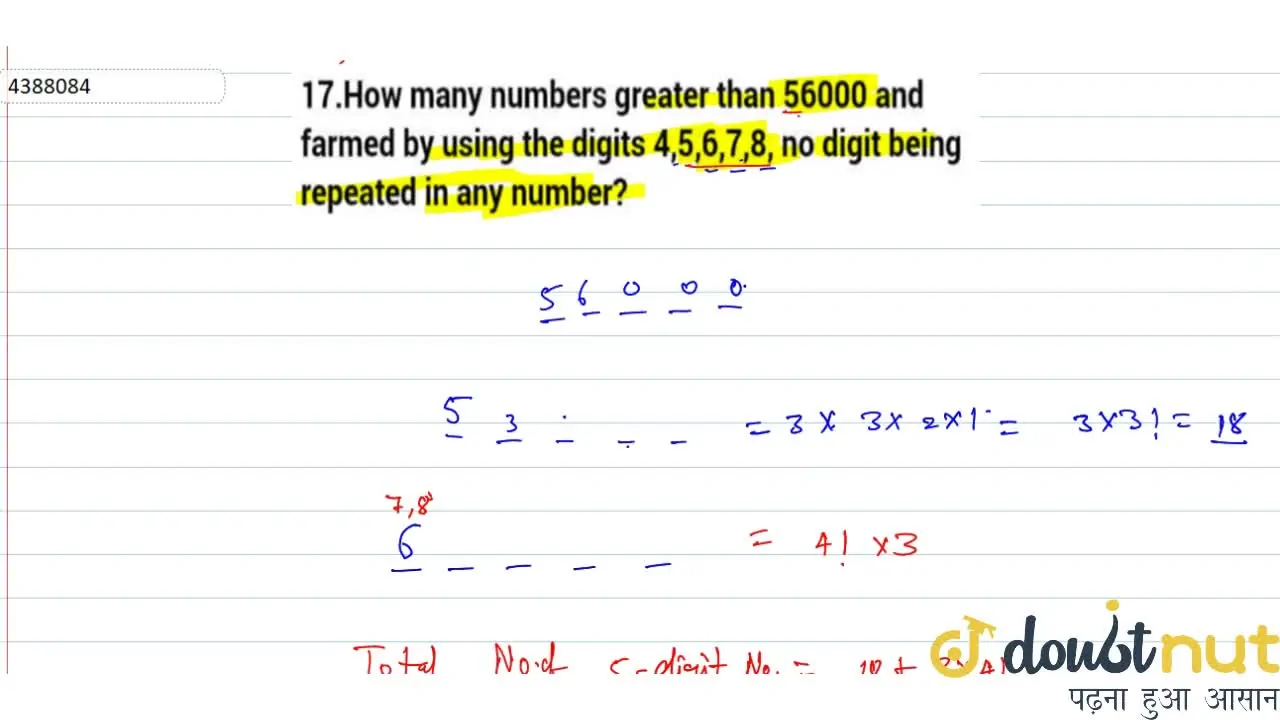 4388084
17.How many numbers greater than 56000 and
farmed by using the digits 4,5,6,7,8, no digit being
repeated in any number?
5 6 0 0 0
5 3 = 3 × 3 × 2 × 1 = 3 × 3! = 18
7,8
6 = 4! × 3
Total No. of 5-digit No. = 18 + 3×4!
doubtnut
पढ़ना हुआ आसान